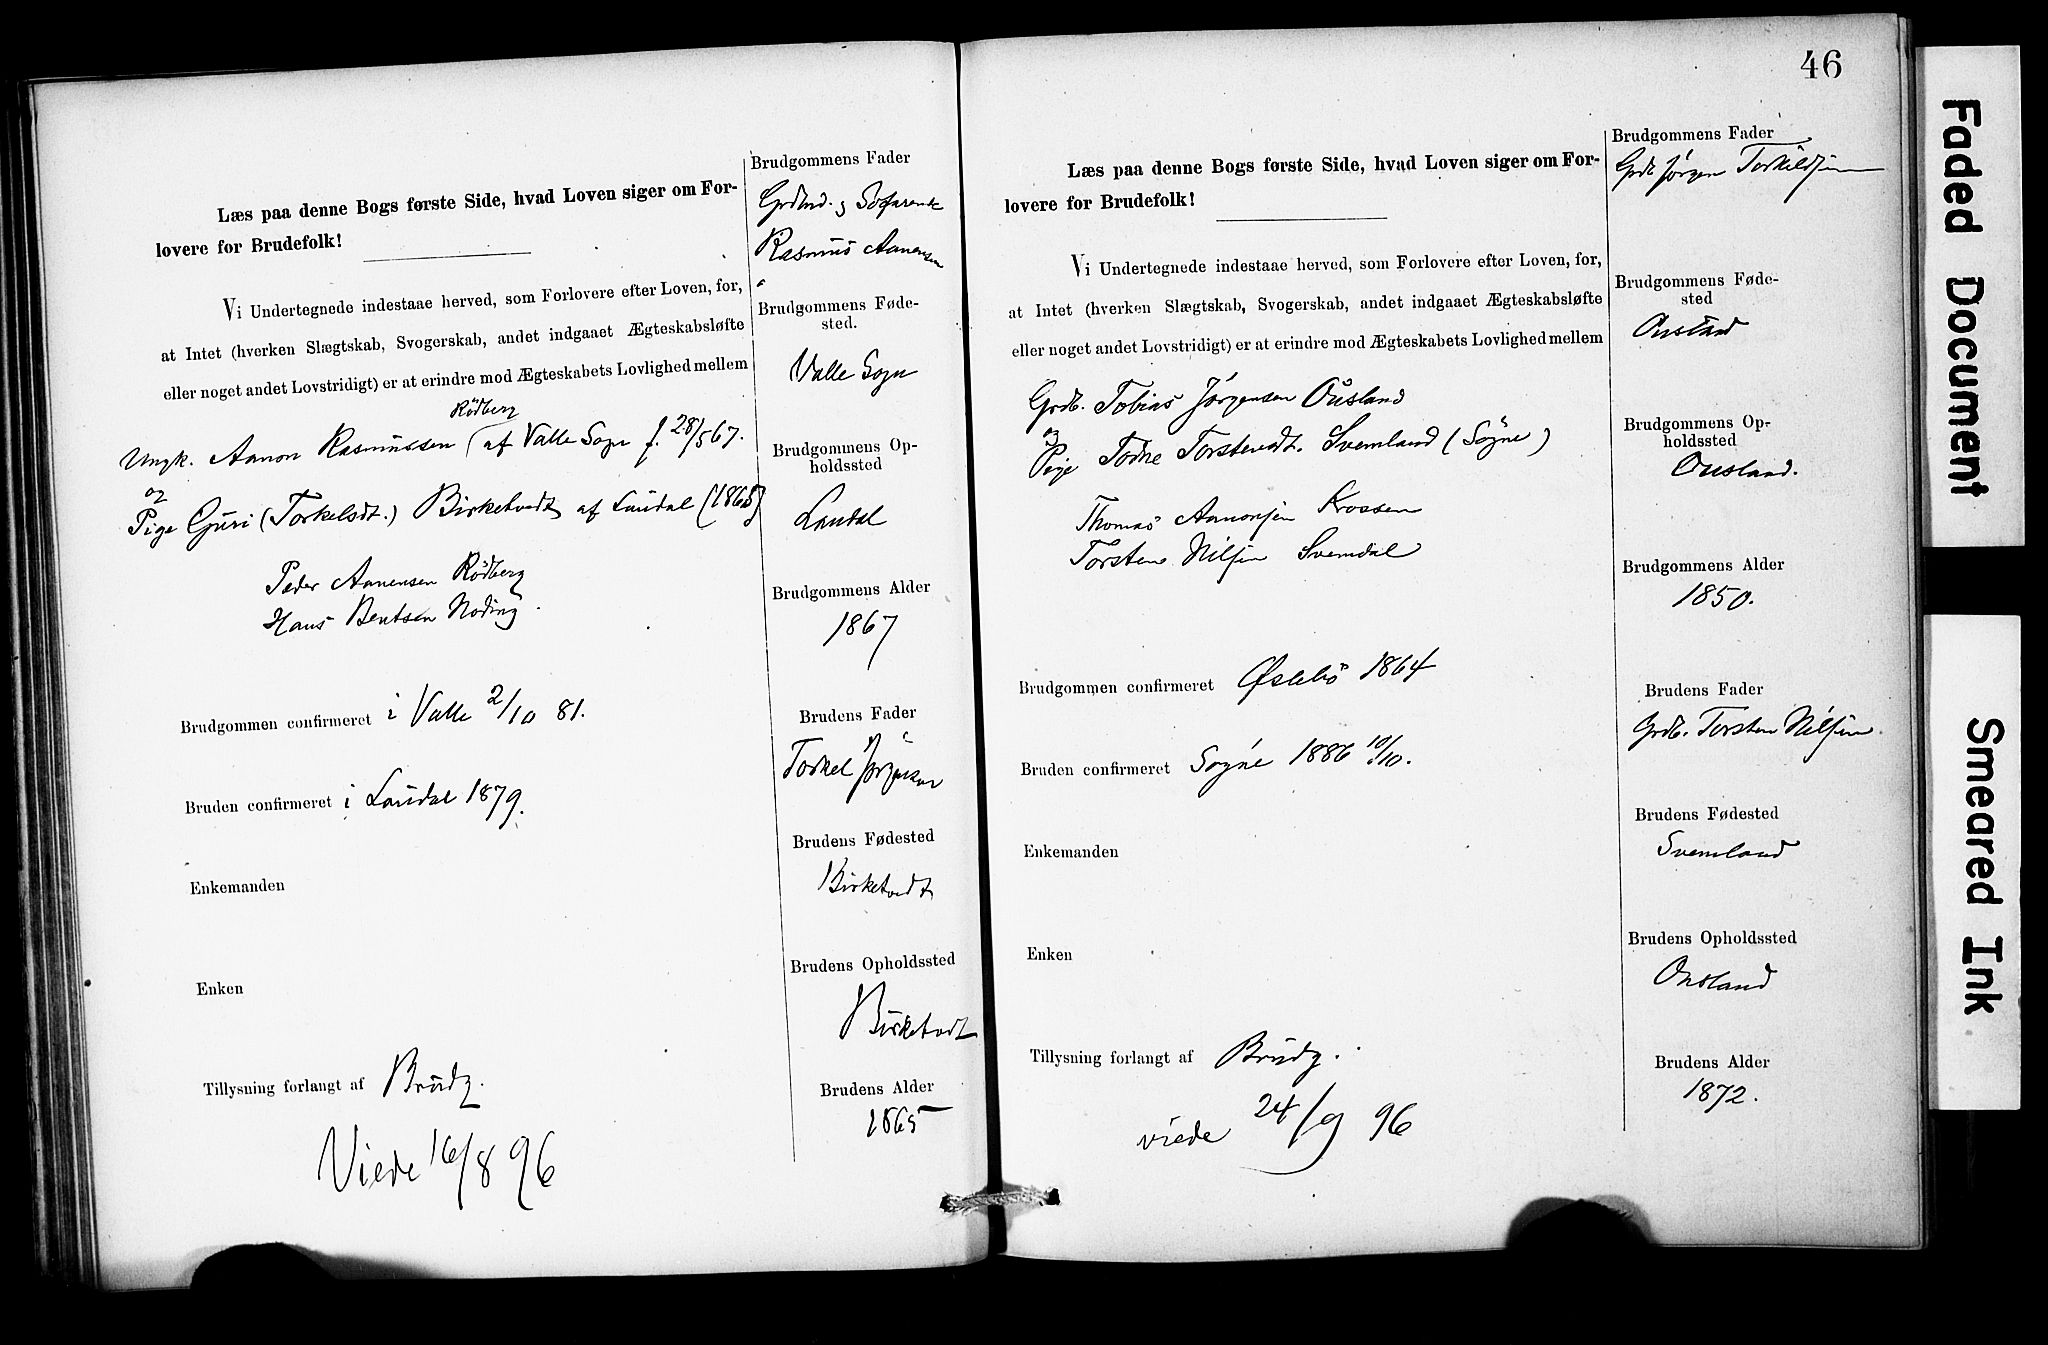 Læs paa denne Bogs første Side, hvad Loven siger om For-
lovere for Brudefolk!
Vi Undertegnede indestaae herved, som Forlovere efter Loven, for,
at Intet (hverken Slægtskab, Svogerskab, andet indgaaet Ægteskabsløfte
eller noget andet Lovstridigt) er at erindre mod Ægteskabets Lovlighed mellem
Rödberg
Ungk. Aanon Rasmussen / af Valle Sogn f. 28/5 67.
og
Pige Guri (Torkelsdt.) Birketvedt af Laudal (1865)
Peder Aanensen Rödberg
Hans Bentsen Noding.
Brudgommen confirmeret i Valle 2/10 81.
Bruden confirmeret i Laudal 1879.
Enkemanden
Enken
Tillysning forlangt af Brudg.
Viede 16/8 96
Brudgommens Fader
Grdmd. og Søfarende
Rasmus Aanensen
Brudgommens Føde-
sted.
Valle Sogn
Brudgommens Op-
holdssted
Laudal
Brudgommens Alder
1867
Brudens Fader
Torkel Jørgensen
Brudens Fødested
Birketvedt
Brudens Opholdssted
Birketvedt
Brudens Alder
1865
46
Læs paa denne Bogs første Side, hvad Loven siger om For-
lovere for Brudefolk!
Vi Undertegnede indestaae herved, som Forlovere efter Loven, for,
at Intet (hverken Slægtskab, Svogerskab, andet indgaaet Ægteskabsløfte
eller noget andet Lovstridigt) er at erindre mod Ægteskabets Lovlighed mellem
Grdb. Tobias Jørgensen Ousland
og
Pige Todne Torstensdt. Svemland (Søgne)
Thomas Aanonsen Krossen
Torsten Nilsen Svemdal
Brudgommen confirmeret Øslebö 1864
Bruden confirmeret Søgne 1886 10/10.
Enkemanden
Enken
Tillysning forlangt af Brudg.
viede 24/9 96
Brudgommens Fader
Grdb. Jørgen Torkildsen
Brudgommens Føde-
sted
Ousland
Brudgommens Op-
holdssted
Ousland.
Brudgommens Alder
1850.
Brudens Fader
Grdb. Torsten Nilsen.
Brudens Fødested
Svemland
Brudens Opholdssted
Ousland
Brudens Alder
1872.
Faded Document
Smeared Ink